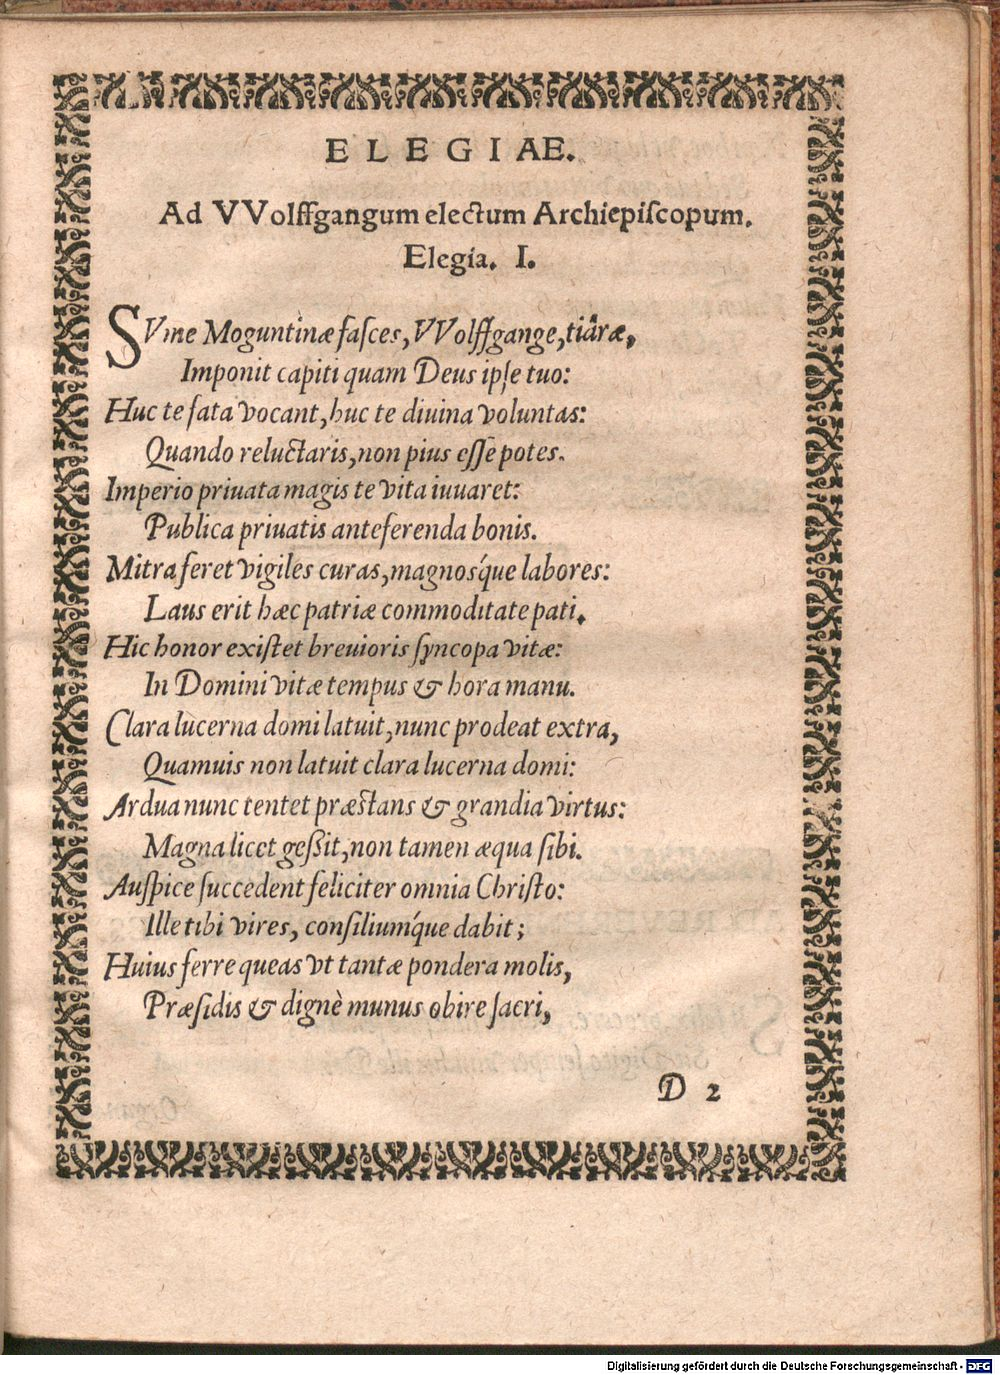 ELEGIAE.
Ad VVolffgangum electum Archiepiſcopum.
Elegia. I.
SVme Moguntinæ faſces, VVolffgange, tiâræ,
Imponit capiti quam Deus ipſe tuo:
Huc te fata vocant, huc te diuina voluntas:
Quando reluctaris, non pius eſſe potes.
Imperio priuata magis te vita iuuaret:
Publica priuatis anteferenda bonis.
Mitra feret vigiles curas, magnosq́ue labores:
Laus erit hæc patriæ commoditate pati.
Hic honor exiſtet breuioris ſyncopa vitæ:
In Domini vitæ tempus & hora manu.
Clara lucerna domi latuit, nunc prodeat extra,
Quamuis non latuit clara lucerna domi:
Ardua nunc tentet præstans & grandia virtus:
Magna licet geßit, non tamen æqua ſibi.
Auſpice ſuccedent feliciter omnia Chriſto:
Ille tibi vires, conſiliumq́ue dabit;
Huius ferre queas vt tantæ pondera molis,
Præſidis & dignè munus obire ſacri,
D 2
Digitalisierung gefördert durch die Deutsche Forschungsgemeinschaft - DFG